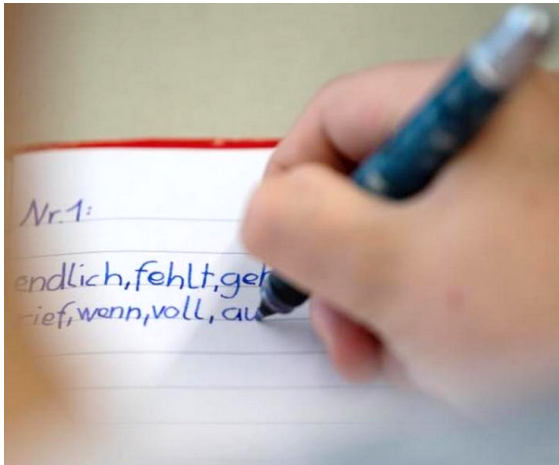 Nr.1:
endlich, fehlt, geh
rief, wenn, voll, au